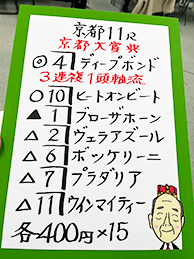 京都11R
京都大賞典
◎4 ディープボンド
3連複1頭軸流
○10 ヒートオンビート
▲1 ブローザホーン
△2 ヴェラアズール
△6 ボッケリーニ
△7 プラダリア
△11 ウインマイティー
各400円×15